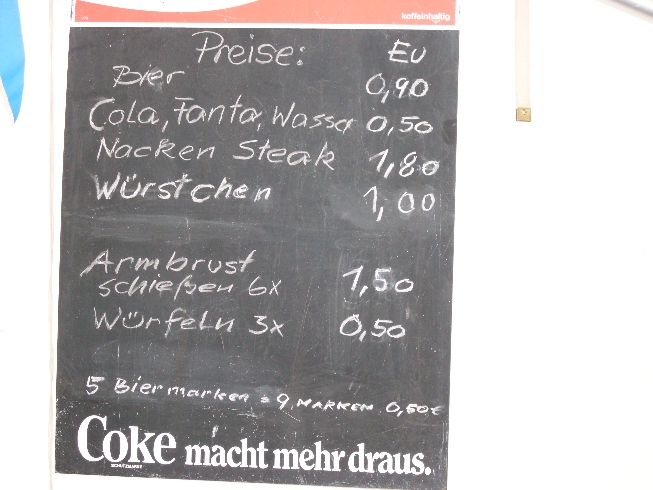 koffeinhaltig
Preise: EU
Bier 0,90
Cola, Fanta, Wasser 0,50
Nacken Steak 1,80
Würstchen 1,00
Armbrust
schießen 6x 1,50
Würfeln 3x 0,50
5 Biermarken = 9 MARKEN 0,50€
Coke macht mehr draus.
SCHUTZMARKE